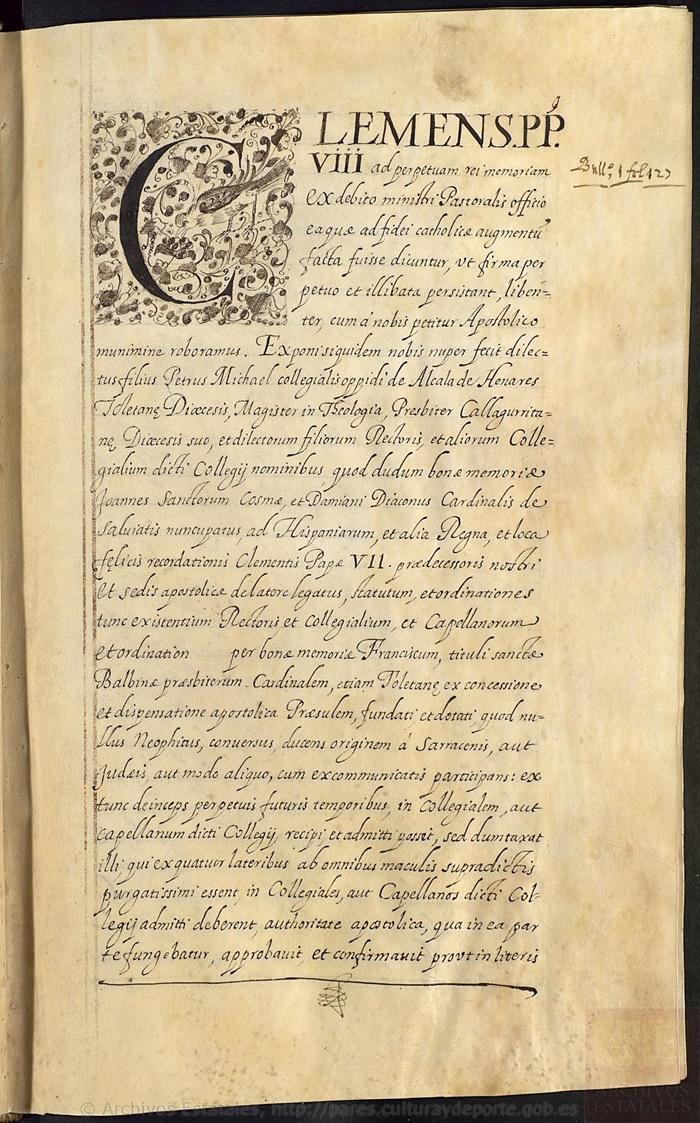 CLEMENS.PP.
VIII ad perpetuam rei memoriam
Bull.º 1 fol 12
ex debito ministri Pastoralis officio
ea quæ ad fidei catholicæ augmentũ
facta fuisse dicuntur, vt firma per
petuo et illibata persistant, liben=
ter, cum á nobis petitur Apostolico
munimine roboramus. Exponi siquidem nobis nuper fecit dilec=
tus filius Petrus Michael collegialis oppidi de Alcala de Henares
Toletanę Diœcesis, Magister in Theologia, Presbiter Callagurrita=
nę, Diœcesis suo, et dilectorum filiorum Rectoris, et aliorum Colle=
gialium dicti Collegij nominibus quod dudum bonæ memoriæ
Joannes Sanctorum Cosmæ, et Damiani Diaconus Cardinalis de
Salviatis nuncupatus, ad Hispaniarum, et alia Regna, et loca
fęlicis recordationis Clementis Papæ VII. prædecessoris nostri
et sedis apostolicæ de latere legatus, statutum, et ordinationes
tunc existentium Rectoris et Collegialium, et Capellanorum
et ordination per bonæ memoriæ Franciscum, tituli sanctæ
Balbinæ præsbiterum Cardinalem, etiam Toletanę, ex concessione
et dispensatione apostolica Præsulem, fundati et dotati quod nu=
llus Neophitus, conversus, ducens originem á Sarracenis, aut
Judæis, aut modo aliquo, cum excommunicatis participans: ex
tunc deinceps perpetuis futuris temporibus, in Collegialem, aut
capellanum dicti Collegij, recipi, et admitti possit, sed dumtaxat
illi, qui ex quatuor lateribus ab omnibus maculis supradictis
purgatissimi essent, in Collegiales, aut Capellanos dicti Col=
legij admitti deberent, authoritate apostolica, qua in ea par
te fungebatur, approbavit, et confirmavit provt in literis
© Archivos Estatales, http://pares.culturaydeporte.gob.es
ARCHIVOS
ESTATALES